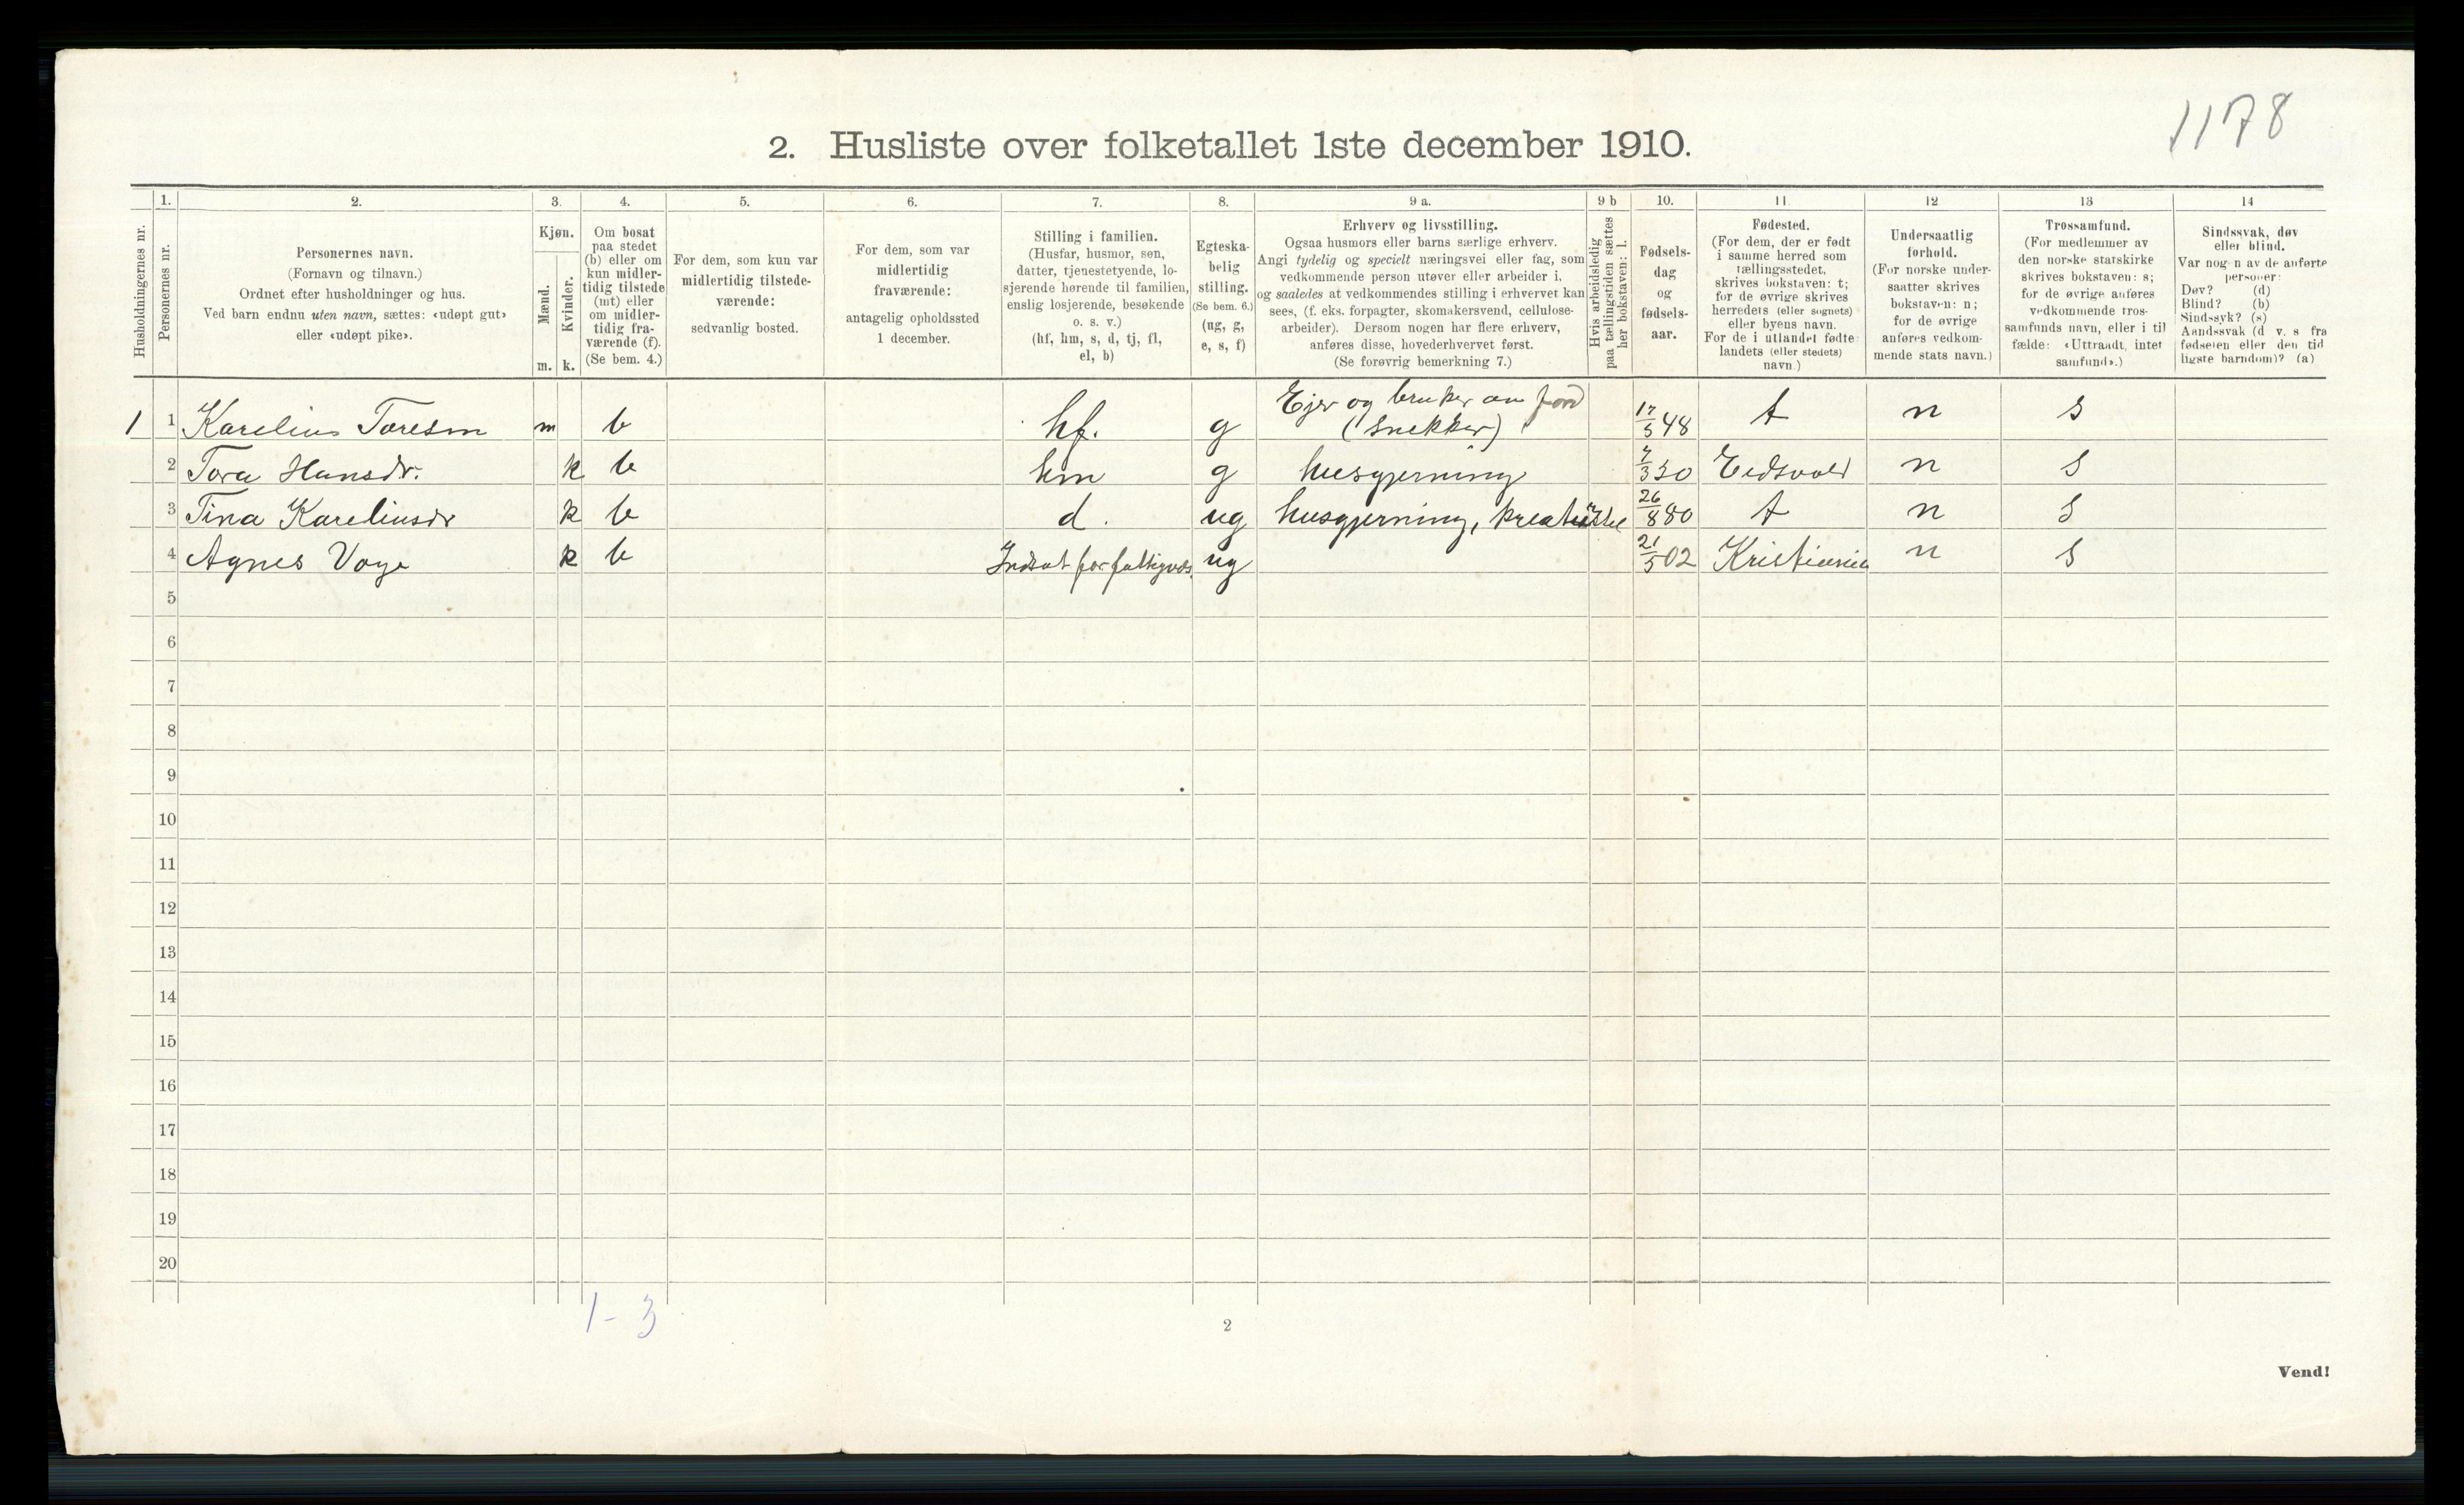 1178
2. Husliste over folketallet 1ste december 1910.
Husholdningernes nr.
1.
Personernes nr.
2.
Personernes navn.
(Fornavn og tilnavn.)
Ordnet efter husholdninger og hus.
Ved barn endnu uten navn, sættes: «udøpt gut»
eller «udøpt pike».
3.
Kjøn.
Mænd.
m.
Kvinder.
k.
4.
Om bosat
paa stedet
(b) eller om
kun midler-
tidig tilstede
(mt) eller
om midler-
tidig fra-
værende (f).
(Se bem. 4.)
5.
For dem, som kun var
midlertidig tilstede-
værende:
sedvanlig bosted.
6.
For dem, som var
midlertidig
fraværende:
antagelig opholdssted
1 december.
7.
Stilling i familien.
(Husfar, husmor, søn,
datter, tjenestetyende, lo-
sjerende hørende til familien,
enslig losjerende, besøkende
o. s. v.)
(hf, hm, s, d, tj, fl,
el, b)
8.
Egteska-
belig
stilling.
(Se bem. 6.)
(ug, g,
e, s, f)
9 a.
Erhverv og livsstilling.
Ogsaa husmors eller barns særlige erhverv.
Angi tydelig og specielt næringsvei eller fag, som
vedkommende person utøver eller arbeider i,
og saaledes at vedkommendes stilling i erhvervet kan
sees, (f. eks. forpagter, skomakersvend, cellulose-
arbeider). Dersom nogen har flere erhverv,
anføres disse, hovederhvervet først.
(Se forøvrig bemerkning 7.)
9 b
Hvis arbeidsledig
paa tællingstiden sættes
her bokstaven: l.
10.
Fødsels-
dag
og
fødsels-
aar.
11
Fødested.
(For dem, der er født
i samme herred som
tællingsstedet,
skrives bokstaven: t;
for de øvrige skrives
herredets (eller sognets)
eller byens navn.
For de i utlandet fødte:
landets (eller stedets)
navn.)
12
Undersaatlig
forhold.
(For norske under-
saatter skrives
bokstaven: n;
for de øvrige
anføres vedkom-
mende stats navn.)
13
Trossamfund.
(For medlemmer av
den norske statskirke
skrives bokstaven: s;
for de øvrige anføres
vedkommende tros-
samfunds navn, eller i til
fælde: «Uttraadt, intet
samfund».)
14
Sindssvak, døv
eller blind.
Var nogen av de anførte
personer:
Døv? (d)
Blind? (b)
Sindssyk? (s)
Aandssvak (d v. s fra
fødselen eller den tid
ligste barndom)? (a)
1 1 Karelius Toresen m b hf. g Ejer og bruker av jord (snekker) 17/5 48 t n s
2 Tora Hansdr. k b hm g husgjerning 7/3 50 Eidsvold n s
3 Tina Kareliusdr k b d. ug husgjerning, kreaturstel 26/8 80 t n s
4 Agnes k b ug 21/5 02 Kristiania n s
5
6
7
8
9
10
11
12
13
14
15
16
17
18
19
20
1-3
2
Vend!